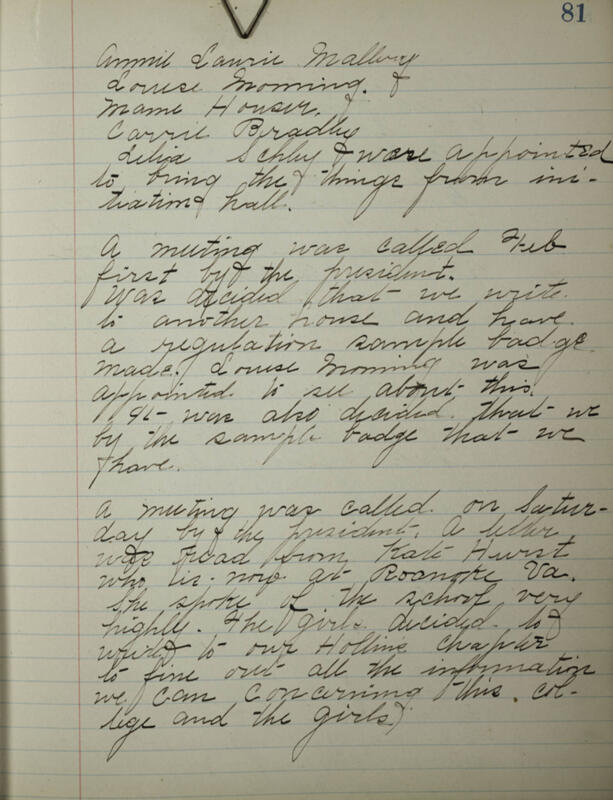 81
Annie Laurie Mallory
Louise Monning. &
Mame Houser.
Carrie Bradley
Lelia Schley & were appointed
to bring the things from ini-
tiation hall.
A meeting was called Feb
first by the president.
Was decided that we write
to another house and have
a regulation sample badge
made. Louise Monning was
appointed to see about this.
It was also decided that we
by the sample badge that we
have.
A meeting was called on Satur-
day by the president. A letter
was read from Kate Hurst
who is now at Roanoke Va.
She spoke of the school very
highly. The girls decided to
write to our Hollins chapter
to fine out all the information
we can concerning this col-
lege and the girls.